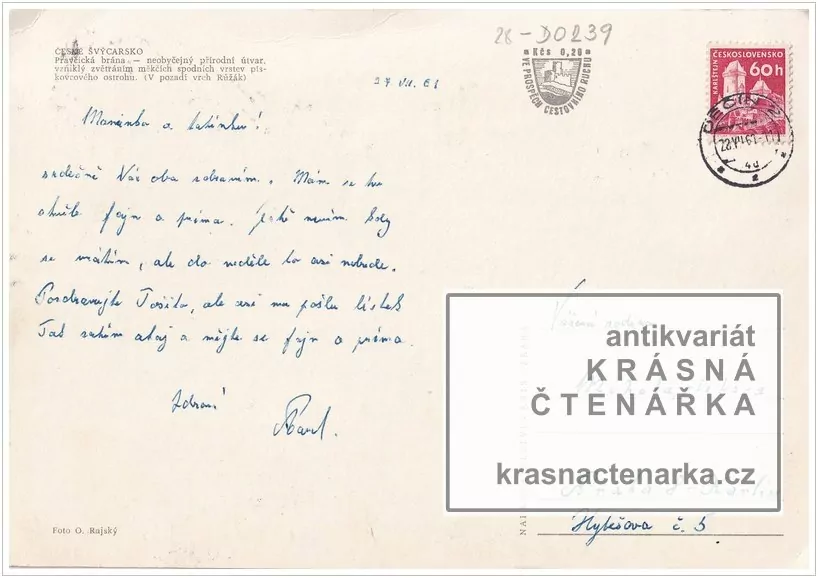 28-D0239
ČESKÉ ŠVÝCARSKO
Pravčická brána — neobyčejný přírodní útvar,
vzniklý zvětráním měkčích spodních vrstev pís-
kovcového ostrohu. (V pozadí vrch Růžák)
Kčs 0,20
VE PROSPĚCH CESTOVNÍHO RUCHU
ČESKOSLOVENSKO
KARLŠTEJN
60h
DĚČÍN 2
27. VII. 61
Maminko a tatínku!
srdečně Vás oba zdravím. Mám se tu
fajn a príma. Ještě nevím kdy
se vrátím, ale do neděle to asi nebude.
Pozdravujte, ale asi mu pošlu lístek
Tak zatím ahoj a mějte se fajn a príma.
Zdraví
Karel.
Foto O. Rajský
Vážená rodina
antikvariát
KRÁSNÁ
ČTENÁŘKA
krasnactenarka.cz
Hybešova č. 5